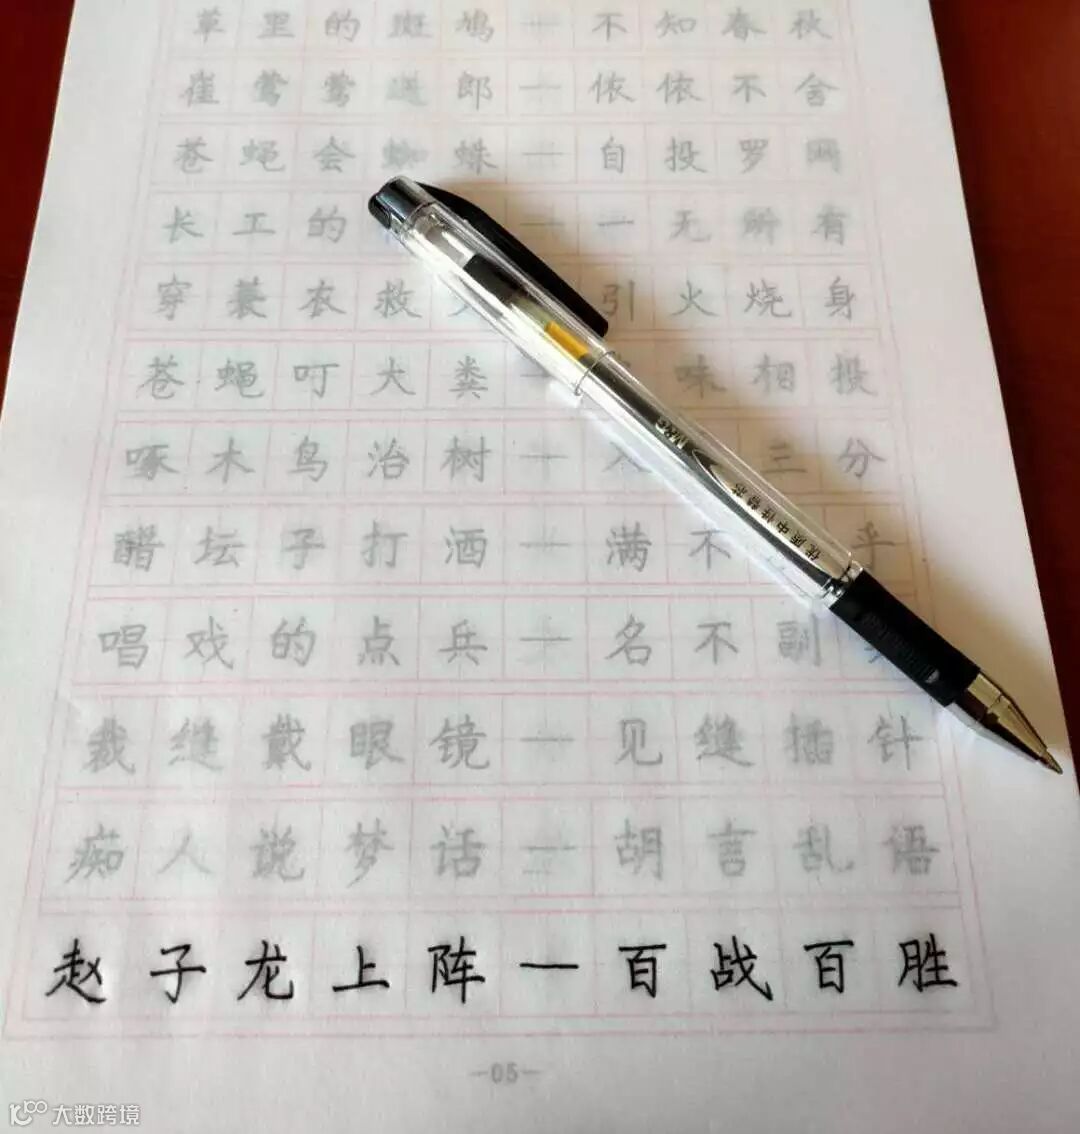 草里的斑鸠一不知春秋
崔莺莺送郎一依依不舍
苍蝇会蜘蛛一自投罗网
长工的一一无所有
穿蓑衣救火引火烧身
苍蝇叮大粪一味相投
啄木鸟治树一入三分
醋坛子打酒一满不乎
唱戏的点兵一名不副
裁缝戴眼镜一见缝插针
痴人说梦话一胡言乱语
赵子龙上阵一百战百胜
优质中性替芯
-05-
大数跨境